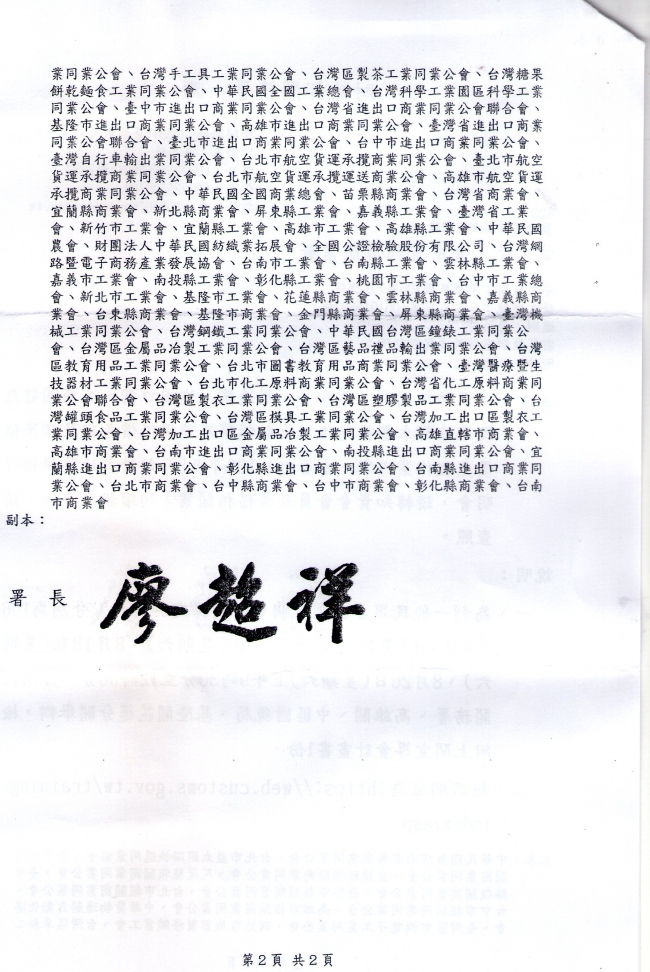 業同業公會、台灣手工具工業同業公會、台灣區製茶工業同業公會、台灣糖果
餅乾麵食工業同業公會、中華民國全國工業總會、台灣科學工業園區科學工業
同業公會、臺中市進出口商業同業公會、台灣省進出口商業同業公會聯合會、
基隆市進出口商業同業公會、高雄市進出口商業同業公會、臺灣省進出口商業
同業公會聯合會、臺北市進出口商業同業公會、台中市進出口商業同業公會、
臺灣自行車輸出業同業公會、台北市航空貨運承攬商業同業公會、臺北市航空
貨運承攬商業同業公會、台北市航空貨運承攬運送商業公會、高雄市航空貨運
承攬商業同業公會、中華民國全國商業總會、苗栗縣商業會、台灣省商業會、
宜蘭縣商業會、新北縣商業會、屏東縣工業會、嘉義縣工業會、臺灣省工業
會、新竹市工業會、宜蘭縣工業會、高雄市工業會、高雄縣工業會、中華民國
農會、財團法人中華民國紡織業拓展會、全國公證檢驗股份有限公司、台灣網
路暨電子商務產業發展協會、台南市工業會、台南縣工業會、雲林縣工業會、
嘉義市工業會、南投縣工業會、彰化縣工業會、桃園市工業會、台中市工業總
會、新北市工業會、基隆市工業會、花蓮縣商業會、雲林縣商業會、嘉義縣商
業會、台東縣商業會、基隆市商業會、金門縣商業會、屏東縣商業會、臺灣機
械工業同業公會、台灣鋼鐵工業同業公會、中華民國台灣區鐘錶工業同業公
會、台灣區金屬品冶製工業同業公會、台灣區藝品禮品輸出業同業公會、台灣
區教育用品工業同業公會、台北市圖書教育用品商業同業公會、臺灣醫療暨生
技器材工業同業公會、台北市化工原料商業同業公會、台灣省化工原料商業同
業公會聯合會、台灣區製衣工業同業公會、台灣區塑膠製品工業同業公會、台
灣罐頭食品工業同業公會、台灣區模具工業同業公會、台灣加工出口區製衣工
業同業公會、台灣加工出口區金屬品冶製工業同業公會、高雄直轄市商業會、
高雄市商業會、台南市進出口商業同業公會、南投縣進出口商業同業公會、宜
蘭縣進出口商業同業公會、彰化縣進出口商業同業公會、台南縣進出口商業同
業公會、台北市商業會、台中縣商業會、台中市商業會、彰化縣商業會、台南
市商業會
副本：
署 長 廖超祥
第2頁 共2頁